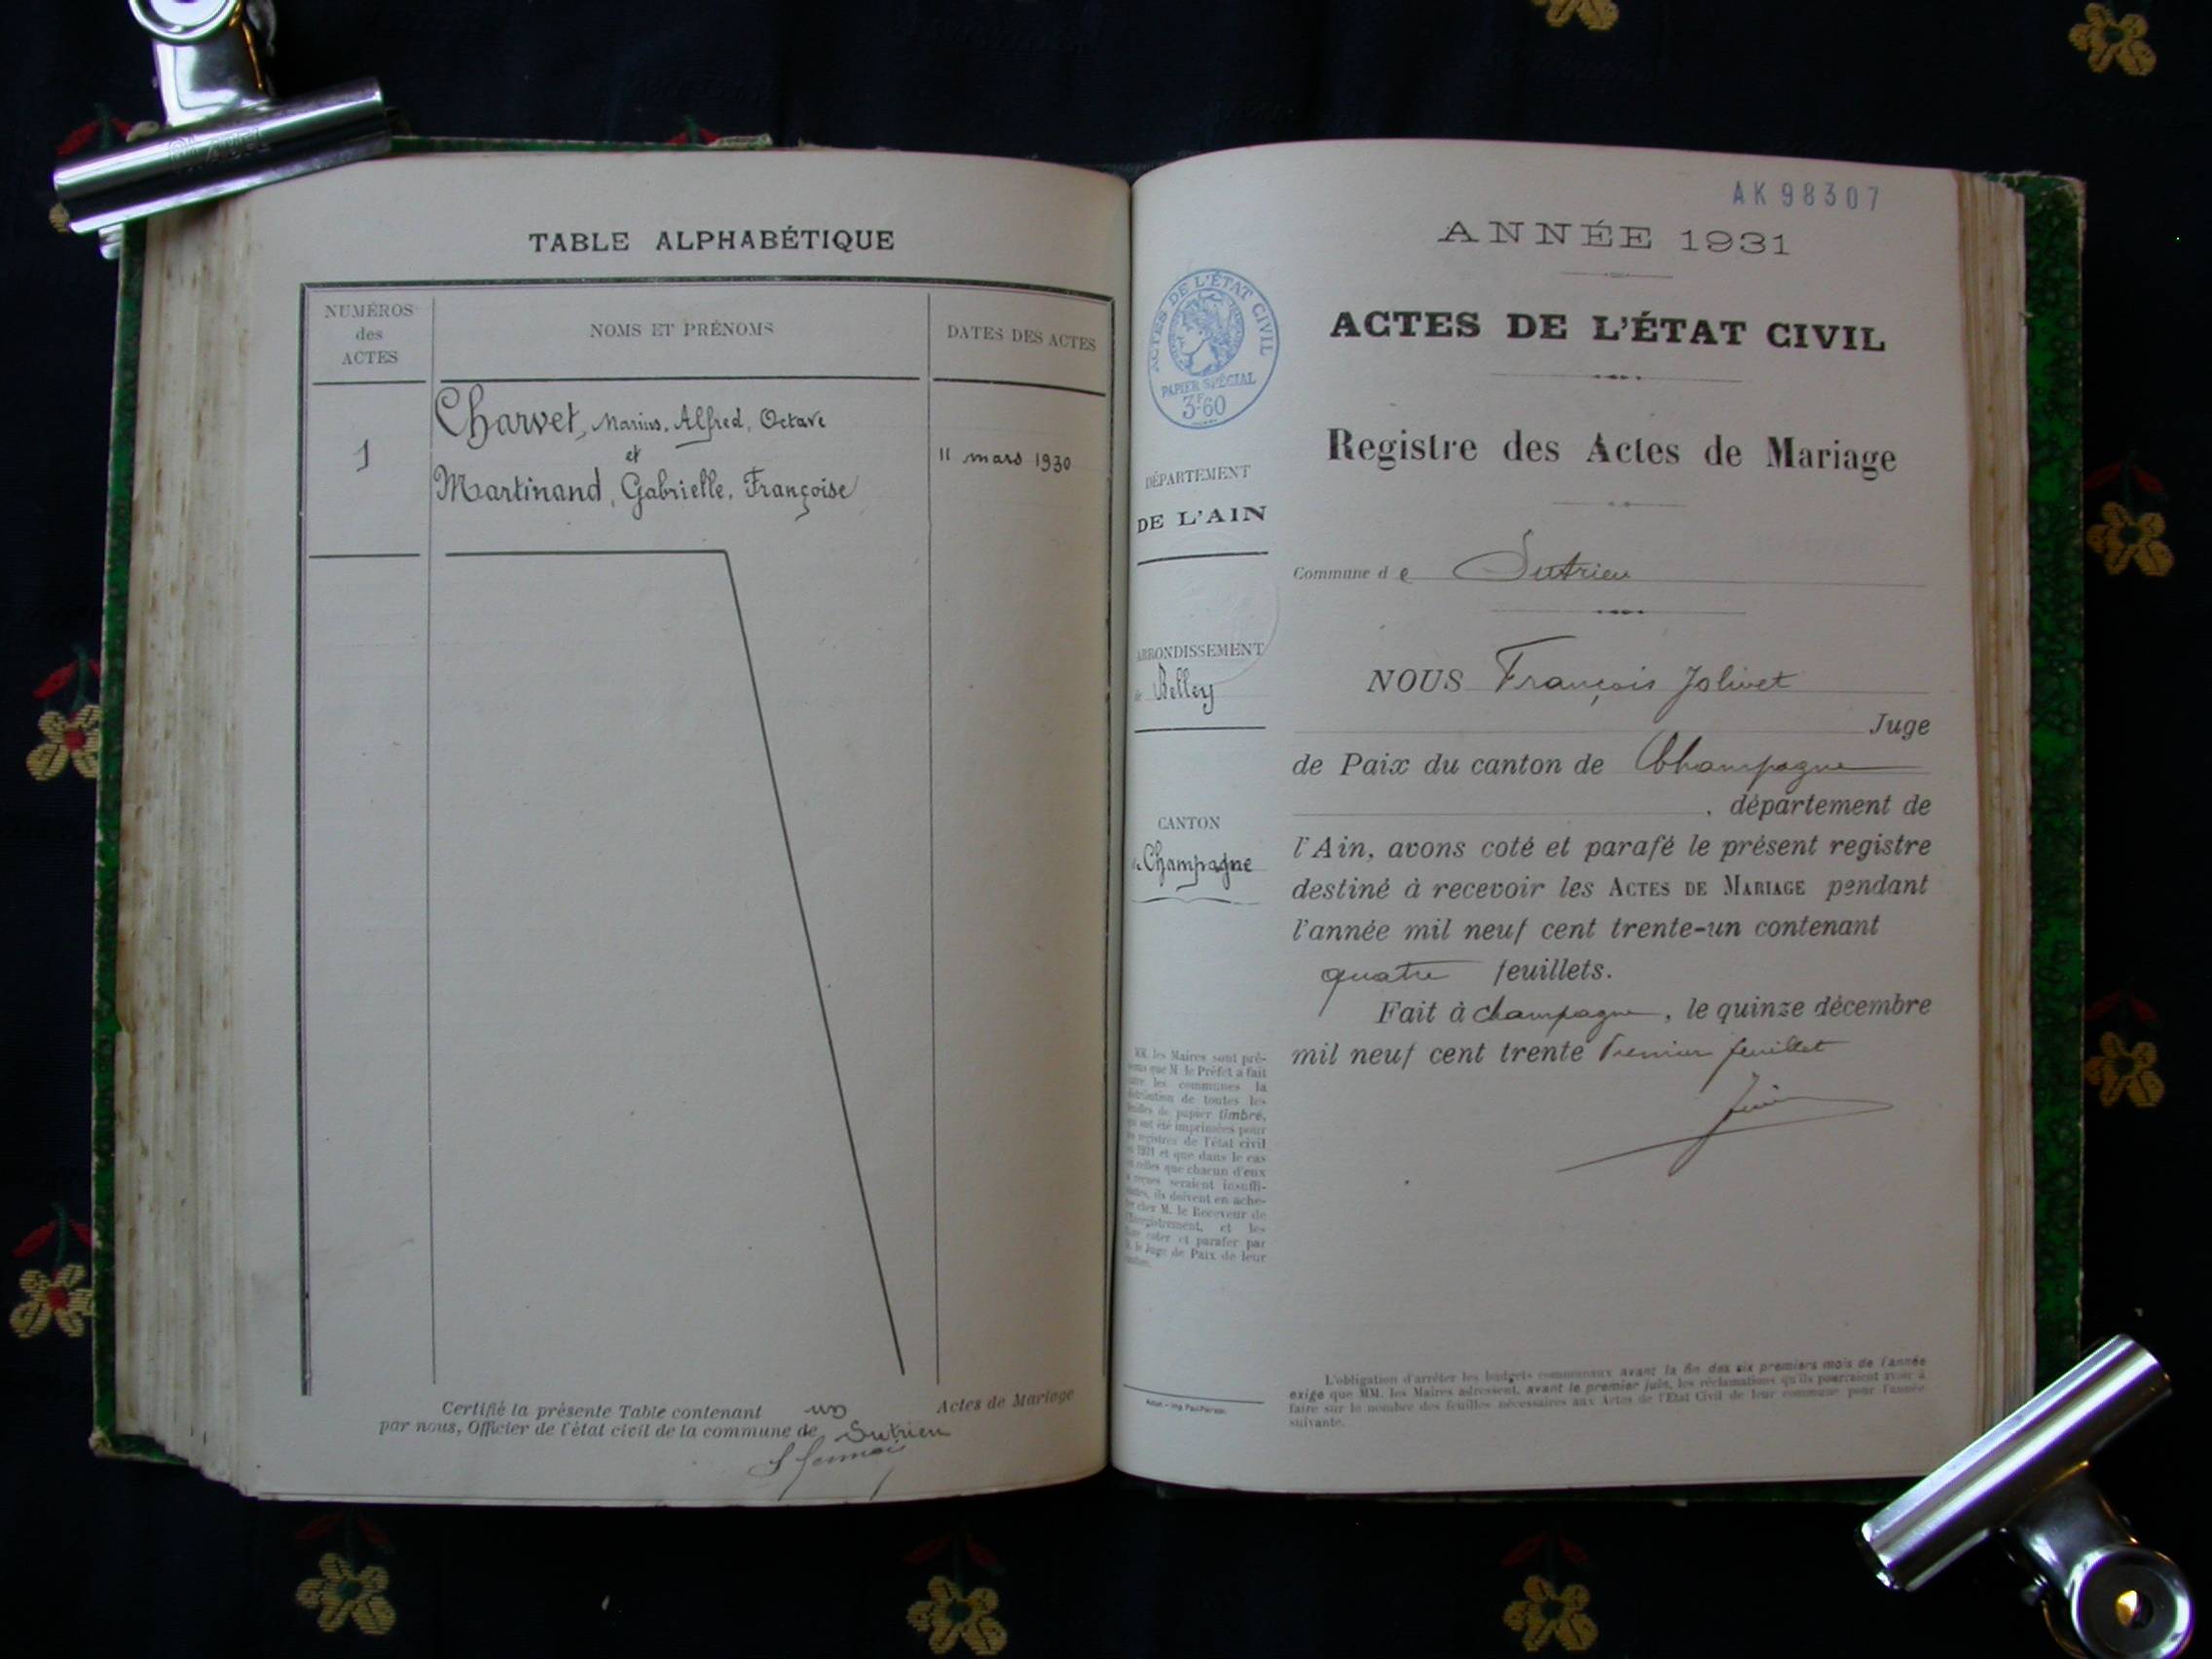 TABLE ALPHABÉTIQUE
NUMÉROS
des
ACTES
NOMS ET PRÉNOMS
DATES DES ACTES
1
Charvet, Marius, Alfred, Octave
et
Martinand, Gabrielle, Françoise
11 mars 1930
Certifié la présente Table contenant un Actes de Mariage
par nous, Officier de l'état civil de la commune de Sutrieu
AK 98307
ANNÉE 1931
ACTES DE L'ÉTAT CIVIL
Registre des Actes de Mariage
ACTES DE L'ÉTAT CIVIL
PAPIER SPÉCIAL
3F60
DÉPARTEMENT
DE L'AIN
ARRONDISSEMENT
de Belley
CANTON
de Champagne
Commune de Sutrieu
NOUS François Jolivet
Juge
de Paix du canton de Champagne
, département de
l'Ain, avons coté et parafé le présent registre
destiné à recevoir les ACTES DE MARIAGE pendant
l'année mil neuf cent trente-un contenant
quatre feuillets.
Fait à Champagne, le quinze décembre
mil neuf cent trente Premier feuillet
MM. les Maires sont pré-
que M. le Préfet a fait
les communes la
de toutes les
de papier timbré,
ont été imprimées pour
registres de l'état civil
1931 et que dans le cas
celles que chacun d'eux
reçues seraient insuffi-
ils doivent en ache-
chez M. le Receveur de
l'Enregistrement, et les
coter et parafer par
le Juge de Paix de leur
canton.
L'obligation d'arrêter les budgets communaux avant la fin des six premiers mois de l'année
exige que MM. les Maires adressent, avant le premier juin, les réclamations qu'ils pourraient avoir à
faire sur le nombre des feuilles nécessaires aux Actes de l'État Civil de leur commune pour l'année
suivante.